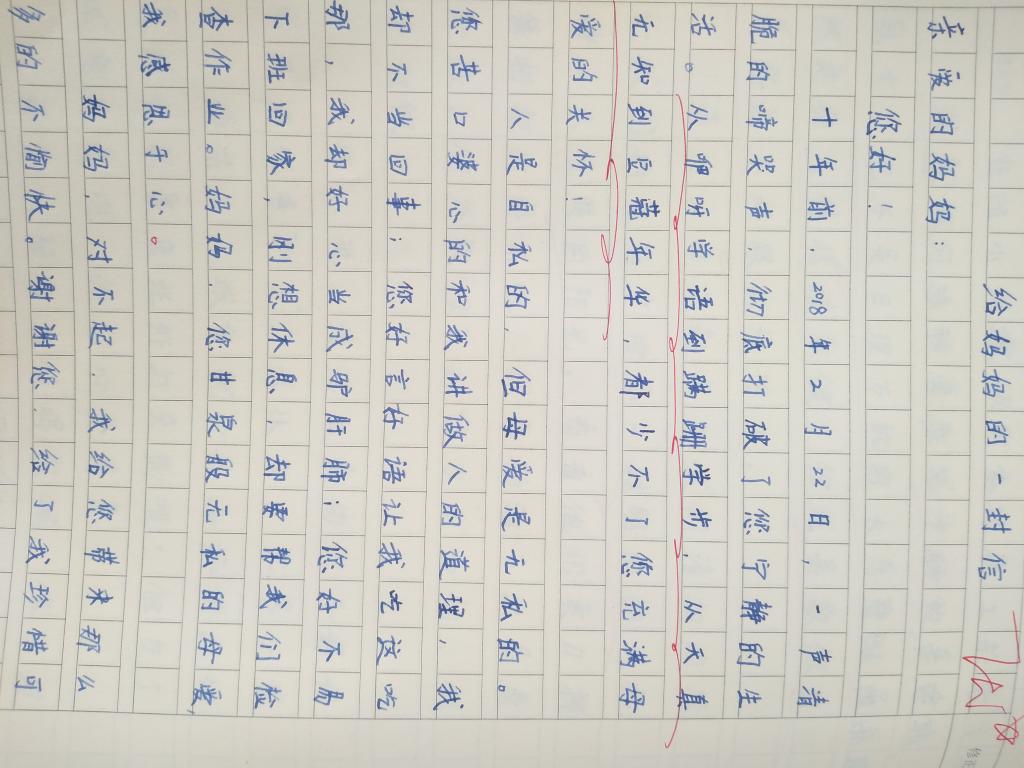 给妈妈的一封信
亲爱的妈妈：
您好！
十年前，2018年2月22日，一声清
脆的啼哭声，彻底打破了您宁静的生
活。从咿呀学语到蹒跚学步，从天真
无知到豆蔻年华，都少不了您充满母
爱的关怀！
人是自私的，但母爱是无私的。
您苦口婆心的和我讲做人的道理，我
却不当回事；您好言好语让我吃这吃
那，我却好心当成驴肝肺；您好不易
下班回家，刚想休息，却要帮我们检
查作业。妈妈，您甘泉般无私的母爱，
我感恩于心。
妈妈，对不起，我给您带来那么
多的不愉快。谢谢您，给了我珍惜可